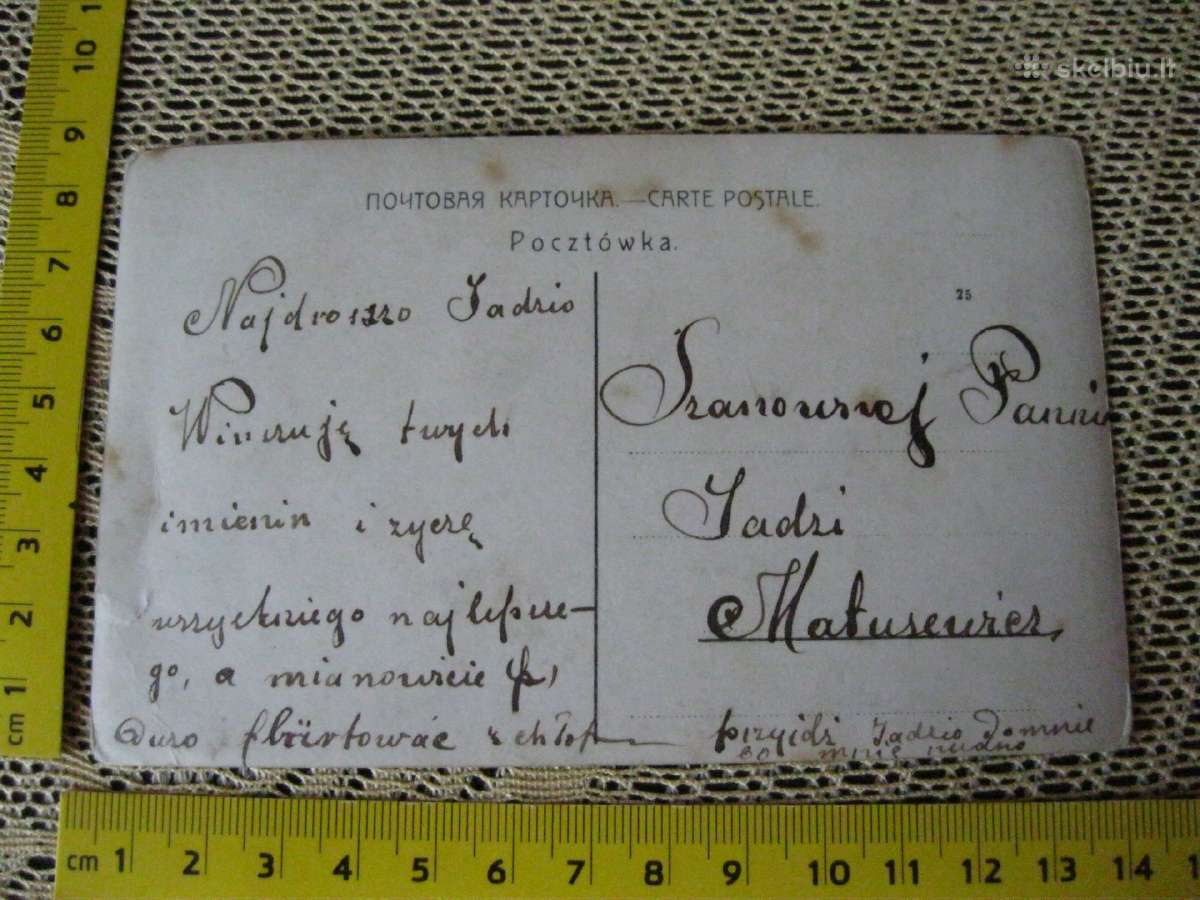 skelbiu.lt
ПОЧТОВАЯ КАРТОЧКА.—CARTE POSTALE.
Pocztówka.
25
Najdroszzo Jadzio
Winczuję twych
imienin i zyczę
wszystkiego najlepsze-
go, a mianowicie
Duzo flürtować z chłop
Szanownej Pannie
Jadzi
Matusewicz,
przyjdz Jadzio Domnie
bo mnie nudno
cm 1 2 3 4 5 6 7 8 9 10
cm 1 2 3 4 5 6 7 8 9 10 11 12 13 14 1